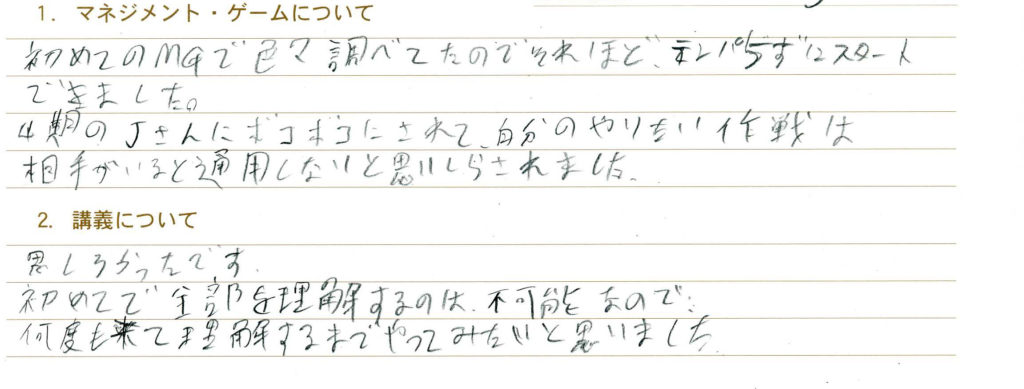 1. マネジメント・ゲームについて
初めてのMGで色々調べてたのでそれほど、テンパらずにスタート
できました。
4期のJさんにボコボコにされて、自分のやりたい作戦は
相手がいると通用しないと思いしらされました。
2. 講義について
思しろかったです。
初めてで全部を理解するのは、不可能なので、
何度も来て理解するまでやってみたいと思いました